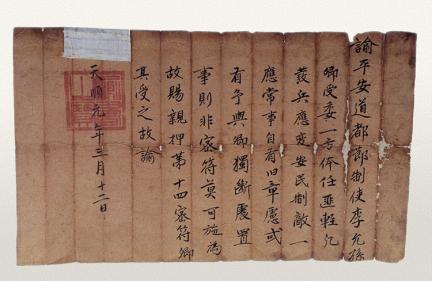 諭平安道都節制使李允孫
卿受委一方体任匪輕凡
發兵應変安民制敵一
應常事自有旧章慮或
有予與卿獨断處置
事則非密符莫可施為
故賜親押第十四密符卿
其受之故諭
天順元年三月十二日